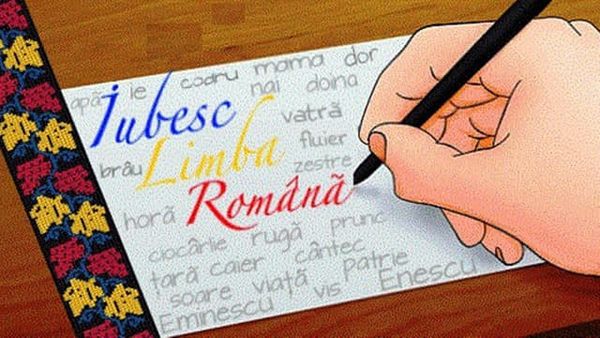 apă ie codru mama dor
nai doina
Iubesc vatră
brâu Limba fluier
zestre
horă Română
ciocârlie rugă prunc
țară caier cântec
soare viață Patrie
Eminescu vis Enescu